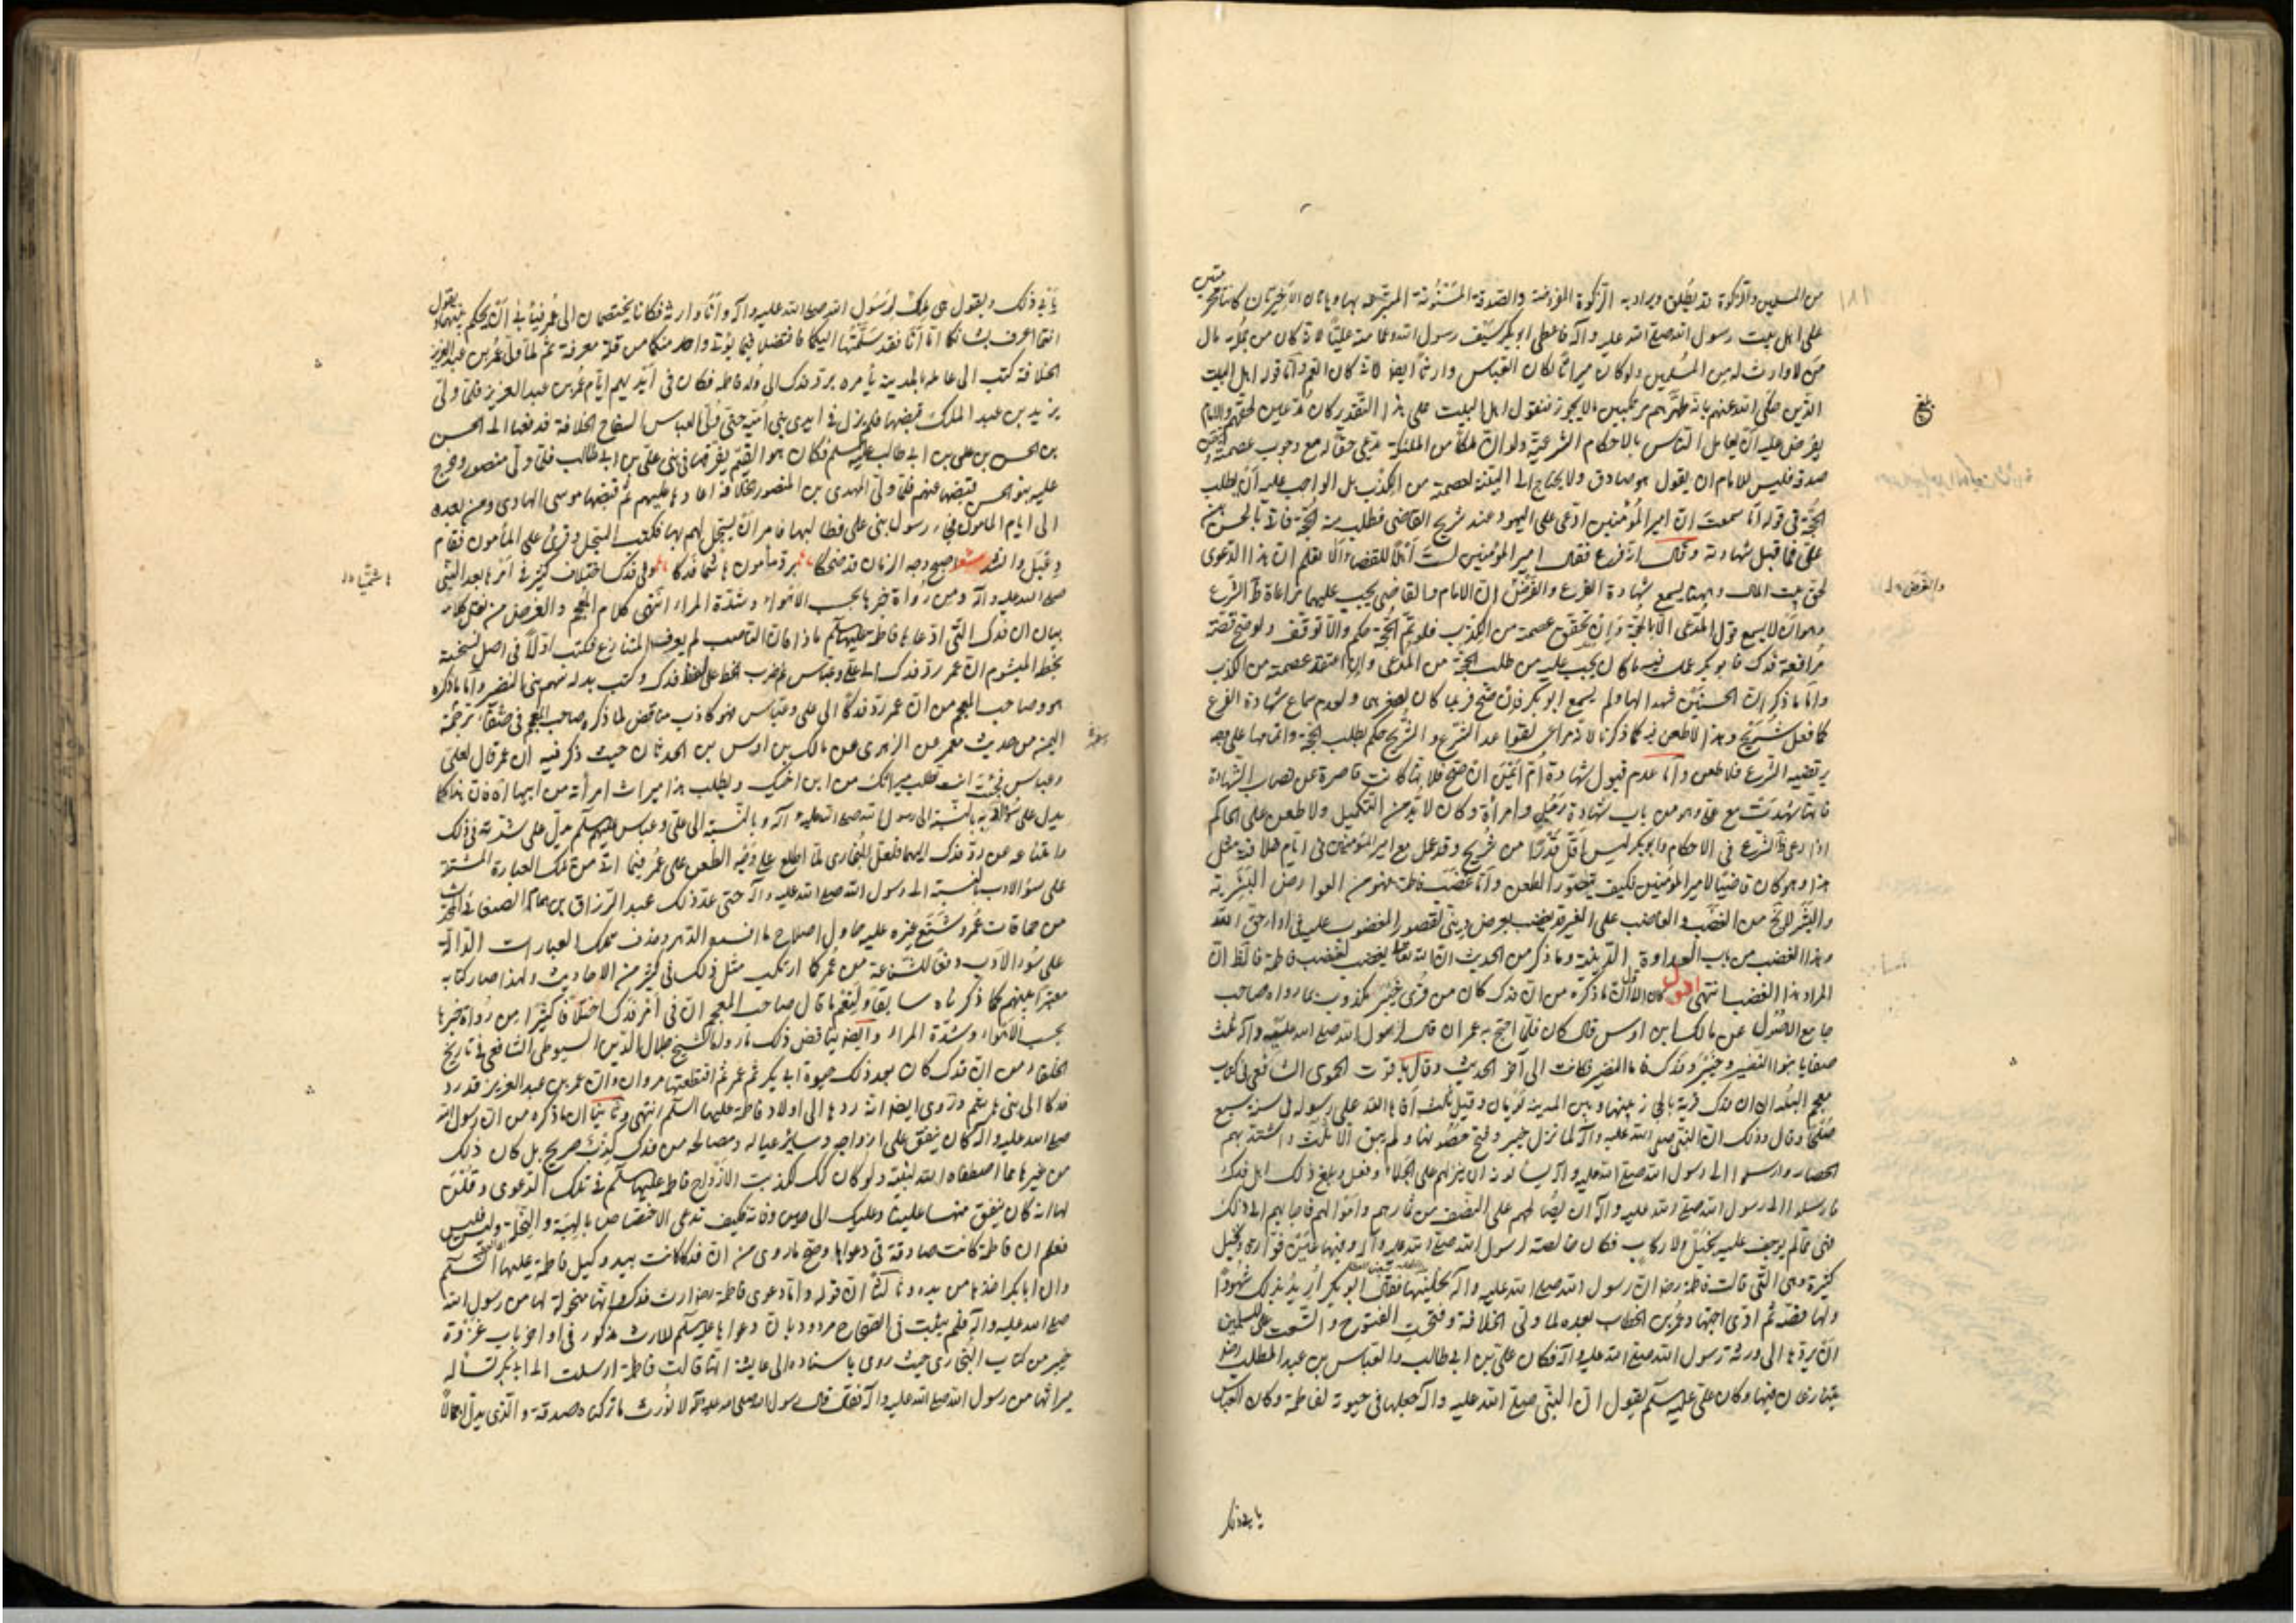 من المسلمين والزكوة قد يطلق ويراد به الزكوة المفروضة والصدقة المسنونة المتبرعة بها وهاتان الاخيرتان كانتا محرمتين
على اهل بيت رسول الله صلى الله عليه وآله فاعطى ابو بكر سيف رسول الله وعمامته عليًا لانه كان من جملة مال
من لا وارث له من المسلمين ولو كان ميراثًا لكان العباس وارثًا ايضا لانه كان العم واما قوله اهل البيت
الذين حكى الله عنهم بانه طهرهم مرتكبين ما لا يجوز فنقول اهل البيت على هذا التقدير كان مدعين لحقهم والامام
يفرض عليه ان يعامل الناس بالاحكام الشرعية ولو ان ملكًا من الملئكة يدعي حقًا له مع وجوب عصمته
صدقه فليس للامام ان يقول هو صادق ولا يحتاج الى البينة لعصمته من الكذب بل الواجب عليه ان يطلب
الحجة في قوله اما سمعت ان امير المؤمنين ادعى على اليهود عند شريح القاضي فطلب منه الحجة فاتى بالحسن بن
على فما قبل شهادته وقال انه فرع فقال امير المؤمنين لست اهلًا للقضاء الا تعلم ان هذا الدعوى
لحق بيت المال وههنا يسمع شهادة الفرع والغرض ان الامام والقاضي يجب عليهما مراعاة ظاهر الشرع
وهو ان لا يسمع قول المدعي الا بالحجة وان تحقق عصمته من الكذب فلو تم الحجة حكم والا توقف ولو صح قصة
مرافعة فدك فابو بكر عمل فيه ما كان يجب عليه من طلب الحجة من المدعي وان اعتقد عصمته من الكذب
واما ما ذكر ان الحسنين شهدا لها ولم يسمع ابو بكر فان صح فربما كان لصغرهما ولعدم سماع شهادة الفرع
كما فعل شريح وهذا لا طعن فيه كما ذكرنا لانه مراعي لقواعد الشرع والشرع حكم بطلب الحجة واتمامها على وجه
يرتضيه الشرع فلا طعن واما عدم قبول شهادة ام ايمن ان صح فلانها كانت قاصرة عن نصاب الشهادة
فانها شهدت مع علي وهو من باب شهادة رجل وامرأة وكان لا بد من التكميل ولا طعن على الحاكم
اذا راعى ظاهر الشرع في الاحكام وابو بكر ليس باقل قدرًا من شريح وقد عمل مع امير المؤمنين في ايام خلافته مثل
هذا وهو كان قاضيًا لامير المؤمنين فكيف يتصور الطعن واما غضب فاطمة فهو من العوارض البشرية
والبشر لا يخ من الغضب والغاضب على الغير قد يغضب لغرض ديني لقصور المغضوب عليه في اداء حق الله
وهذا الغضب من باب العداوة الدينية وما ذكر من الحديث ان الله تعالى يغضب لغضب فاطمة فالظ ان
المراد هذا الغضب انتهى اقول اما اولا فلان ما ذكره من ان فدك كان من قرى خيبر مكذوب بما رواه صاحب
جامع الاصول عن مالك ابن اوس قال كان فلما احتج به عمر ان قال لرسول الله صلى الله عليه وآله ثلث
صفايا بنو النضير وخيبر وفدك فاما النضير فكانت الى آخر الحديث وقال ياقوت الحموي الشافعي في كتاب
معجم البلدان ان فدك قرية بالحجاز بينها وبين المدينة يومان وقيل ثلث افاءها الله على رسوله في سنة سبع
صلحًا وذلك ان النبي صلى الله عليه وآله لما نزل خيبر وفتح حصونها ولم يبق الا ثلث واشتد بهم
الحصار وارسلوا الى رسول الله صلى الله عليه وآله يسألونه ان ينزلهم على الجلاء وفعل وبلغ ذلك اهل فدك
فارسلوا الى رسول الله صلى الله عليه وآله ان يصالحهم على النصف من ثمارهم واموالهم فاجابهم الى ذلك
فهي مما لم يوجف عليه بخيل ولا ركاب فكان خالصة لرسول الله صلى الله عليه وآله وفيها عين فوارة ونخيل
كثيرة وهي التي قالت فاطمة رضا ان رسول الله صلى الله عليه وآله نحلنيها فقال ابو بكر اريد بذلك شهودًا
ولها قصة ثم ادى اجتهاد عمر بن الخطاب بعده لما ولي الخلافة وفتحت الفتوح واتسعت على المسلمين
ان يردها الى ورثة رسول الله صلى الله عليه وآله فكان علي بن ابي طالب والعباس بن عبد المطلب رض
يتنازعان فيها وكان علي عليه السلام يقول ان النبي صلى الله عليه وآله جعلها في حيوته لفاطمة وكان العباس
يأبى ذلك ويقول هي ملك لرسول الله صلى الله عليه وآله وانا وارثه فكانا يختصمان الى عمر فيأبى ان يحكم بينهما ويقول
انتما اعرف بشأنكما اما انا فقد سلمتها اليكما فاقتصدا فيما يؤتى واحد منكما من قلة معرفة ثم لما ولي عمر بن عبد العزيز
الخلافة كتب الى عامله بالمدينة يأمره برد فدك الى ولد فاطمة فكان في ايديهم ايام عمر بن عبد العزيز فلما ولي
يزيد بن عبد الملك قبضها فلم يزل في ايدي بني امية حتى ولي ابو العباس السفاح الخلافة فدفعها الى الحسن
بن الحسن بن علي بن ابي طالب عليه السلم فكان هو القيم يفرقها في بني علي بن ابي طالب فلما ولي منصور وخرج
عليه بنو الحسن قبضها عنهم فلما ولي المهدي بن المنصور الخلافة اعادها عليهم ثم قبضها موسى الهادي ومن بعده
الى ايام المأمون فجاءه رسول بني علي فطالبها فامر ان يسجل لهم بها فكتب السجل وقرئ على المأمون فقام
دعبل وانشد شعر اصبح وجه الزمان قد ضحكا برد مأمون هاشما فدكا وفي فدك اختلاف كثير في امرها بعد النبي
صلى الله عليه وآله ومن رواة خبرها بحسب الاهواء وشدة المراء انتهى كلام المعجم والغرض من نقل كلامه
بيان ان فدك التي ادعاها فاطمة عليها السلم ماذا فان الناصب لم يعرف المتنازع فكتب اولًا في اصل نسخته
بخطه الميشوم ان عمر رد فدك الى علي وعباس ثم ضرب الخط على لفظ فدك وكتب بدله سهم بني النضير واما ما ذكره
هو وصاحب المعجم من ان عمر رد فدكًا الى علي وعباس فهو كاذب مناقض لما ذكره صاحب المعجم في
من حديث معمر عن الزهري عن مالك بن اوس بن الحدثان حيث ذكر فيه ان عمر قال لعلي
وعباس فجئت انت تطلب ميراثك من ابن اخيك ويطلب هذا ميراث امرأته من ابيها
يدل على سوء ادبه بالنسبة الى رسول الله صلى الله عليه وآله وبالنسبة الى علي وعباس عليهم السلم يدل على شدته في ذلك
وامتناعه عن رد فدك اليهما فلعل البخاري لما اطلع على توجه الطعن على عمر فيما اتته من تلك العبارة المشتملة
على سوء الادب بالنسبة الى رسول الله صلى الله عليه وآله حتى عد ذلك عبد الرزاق بن همام الصنعاني المحدث
من حماقات عمر وشنع غيره عليه حاول اصلاح ما افسده الدهر وحذف تلك العبارات الدالة
على سوء الادب دفعًا للشناعة من عمر كما ارتكب مثل ذلك في كثير من الاحاديث ولهذا صار كتابه
معتبرًا بينهم كما ذكرناه سابقًا ولنعم ما قال صاحب المعجم ان في امر فدك اختلافًا كثيرًا من رواة خبرها
بحسب الاهواء وشدة المراء وايضا يناقض ذلك ما رواه الشيخ جلال الدين السيوطي الشافعي في تاريخ
الخلفاء من ان فدك كان بعد ذلك حيوة ابي بكر ثم عمر ثم اقتطعتها مروان وان عمر بن عبد العزيز قد رد
فدكا الى بني هاشم وروى ايضا انه ردها الى اولاد فاطمة عليها السلم انتهى وثانيًا ان ما ذكره من ان رسول الله
صلى الله عليه وآله كان ينفق على ازواجه وسائر عياله ومصالحه من فدك كذب صريح بل كان ذلك
من غيرها مما اصطفاه الله لنفسه ولو كان كك لكذبت الازواج فاطمة عليها السلم في تلك الدعوى وقلن
لها انه كان ينفق منها علينا وعليك الى حين وفاته فكيف تدعي الاختصاص بالهبة والنحلة وليس فليس
فعلم ان فاطمة كانت صادقة في دعواها وصح ما روي من ان فدكا كانت بيد وكيل فاطمة عليها السلم
وان ابا بكر اخذها من يده وثالثًا ان قوله واما دعوى فاطمة رضا ارث فدك وانها منحولة لها من رسول الله
صلى الله عليه وآله فلم يثبت في الصحاح مردود بان دعواها عليها السلم للارث مذكور في اواخر باب غزوة
خيبر من كتاب البخاري حيث روى باسناده الى عايشة انها قالت فاطمة ارسلت الى ابي بكر تسأله
ميراثها من رسول الله صلى الله عليه وآله فقال قال رسول الله صلى الله عليه وآله لا نورث ما تركناه صدقة والذي يدل اجمالًا